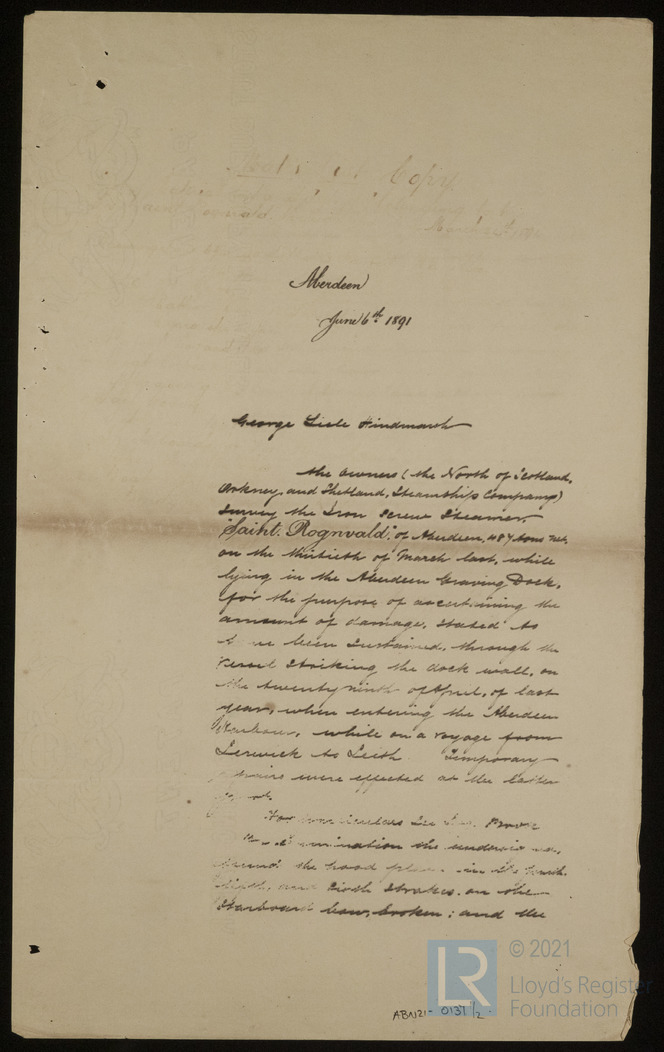 Copy
Aberdeen
June 6th 1891
George Lisle Hindmarsh
the owners (the North of Scotland,
Orkney, and Shetland, Steamship Company)
survey the Iron Screw Steamer
"Saint. Rognvald", of Aberdeen, 487 tons net,
on the thirtieth of March last, while
lying in the Aberdeen Graving Dock,
for the purpose of ascertaining the
amount of damage, stated to
been sustained, through the
vessel striking the dock wall, on
the twenty ninth of April, of last
year, when entering the Aberdeen
Harbour, while on a voyage from
Lerwick to Leith. Temporary
were effected at the latter
For particulars see
the undersigned,
found the hood in the fourth
fifth, and sixth strakes, on the
Starboard bow, broken; and the
LR
© 2021
Lloyd's Register
Foundation
ABN21-0137 1/2